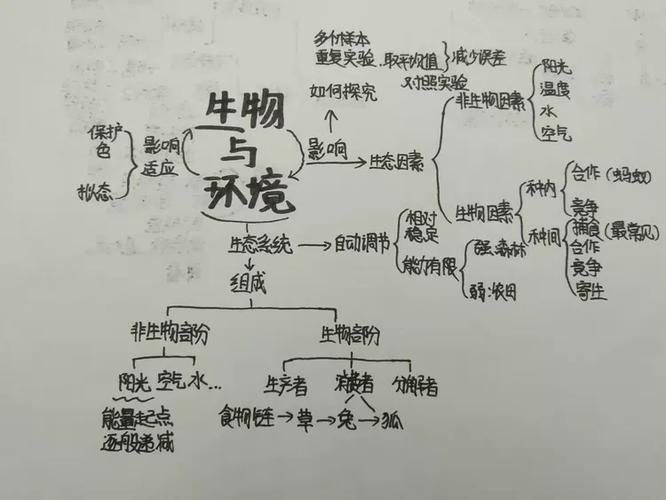 多个样本
重复实验、取平均值 减少误差
对照实验
如何探究
生物
与
环境
影响
适应
保护
色
拟态
影响
生态因素
非生物因素
阳光
温度
水
空气
生物因素
种内
合作(蚂蚁)
竞争
种间
捕食(最常见)
合作
竞争
寄生
生态系统
自动调节
相对
稳定
能力有限
强:森林
弱:农田
组成
非生物部份
生物部份
阳光 空气 水...
能量起点
逐级递减
生产者 消费者 分解者
食物链→草→兔→狐